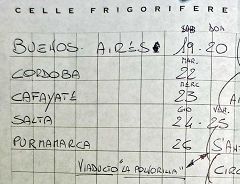 CELLE FRIGORIFERE
SAB DOM
BUENOS AIRES 19-20
MAR.
CORDOBA 22
MERC
CAFAYATE 23
GIO VEN.
SALTA 24-25
PURMAMARCA 26
VIADUCTO "LA POLVORILLA"